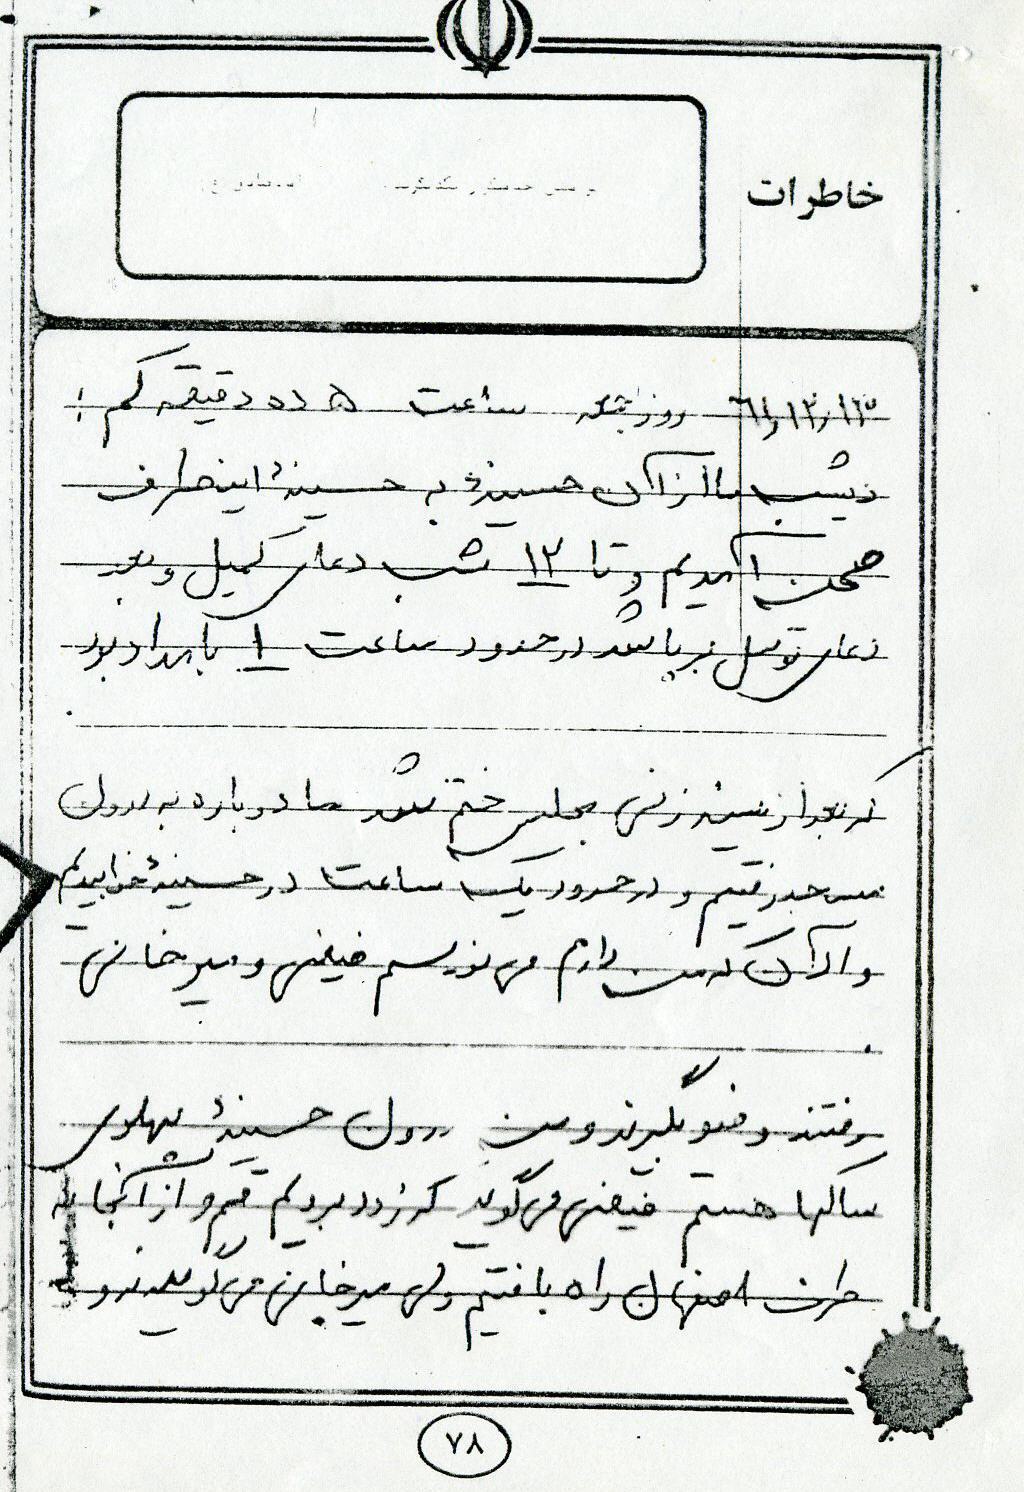 خاطرات
۶۱/۱۲/۱۳ روز جمعه ساعت ۵ ده دقیقه کم :
دیشب ما از آن حسینیه به حسینیهٔ اینطرف
صحن آمدیم و تا ۱۲ شب دعای کمیل و بعد
دعای توسل برپا شد در حدود ساعت ۱ بامداد بود
که بعد از سینه زنی مجلس ختم شد ما دوباره به درون
مسجد رفتیم و در حدود یک ساعت در حسینیه خوابیدیم
و الان که من دارم می نویسم فیضی و میرخانی
رفتند وضو بگیرند و من درون حسینیهٔ پهلوی
ساکها هستم فیضی می گوید که زود برویم قم و از آنجا به
طرف اصفهان راه بافتیم ولی میرخانی می گوید
۷۸